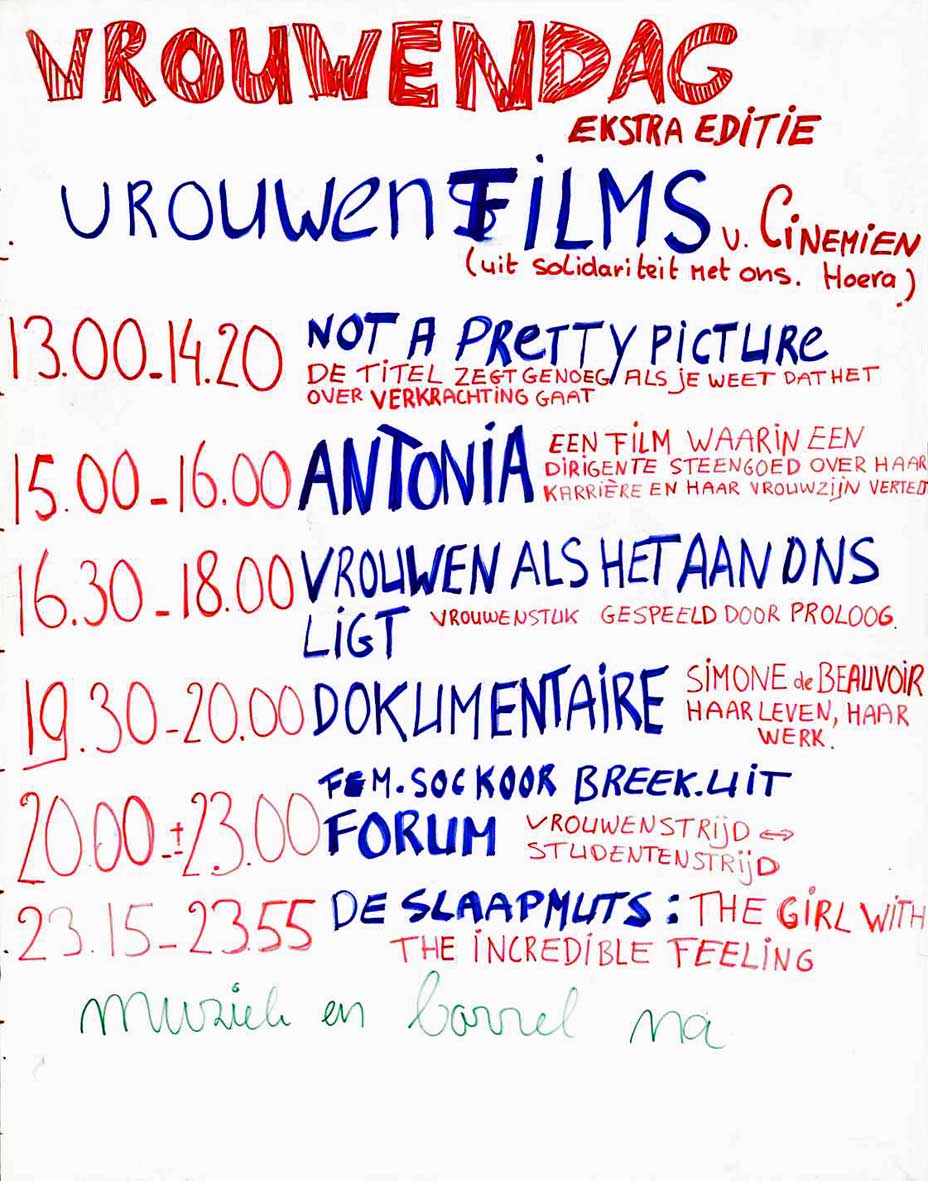 VROUWENDAG
EKSTRA EDITIE
VROUWENFILMS v. CINEMIEN
(uit solidariteit met ons. Hoera)
13.00-14.20 NOT A PRETTY PICTURE
DE TITEL ZEGT GENOEG ALS JE WEET DAT HET
OVER VERKRACHTING GAAT
15.00-16.00 ANTONIA EEN FILM WAARIN EEN
DIRIGENTE STEENGOED OVER HAAR
KARRIÈRE EN HAAR VROUWZIJN VERTED
16.30-18.00 VROUWEN ALS HET AAN ONS
LIGT VROUWENSTUK GESPEELD DOOR PROLOOG.
19.30-20.00 DOKUMENTAIRE SIMONE de BEAUVOIR
HAAR LEVEN, HAAR
WERK.
FEM.SOC KOOR BREEK.UIT
20.00-±23.00 FORUM VROUWENSTRIJD ⇔
STUDENTENSTRIJD
23.15-23.55 DE SLAAPMUTS: THE GIRL WITH
THE INCREDIBLE FEELING
muziek en borrel na